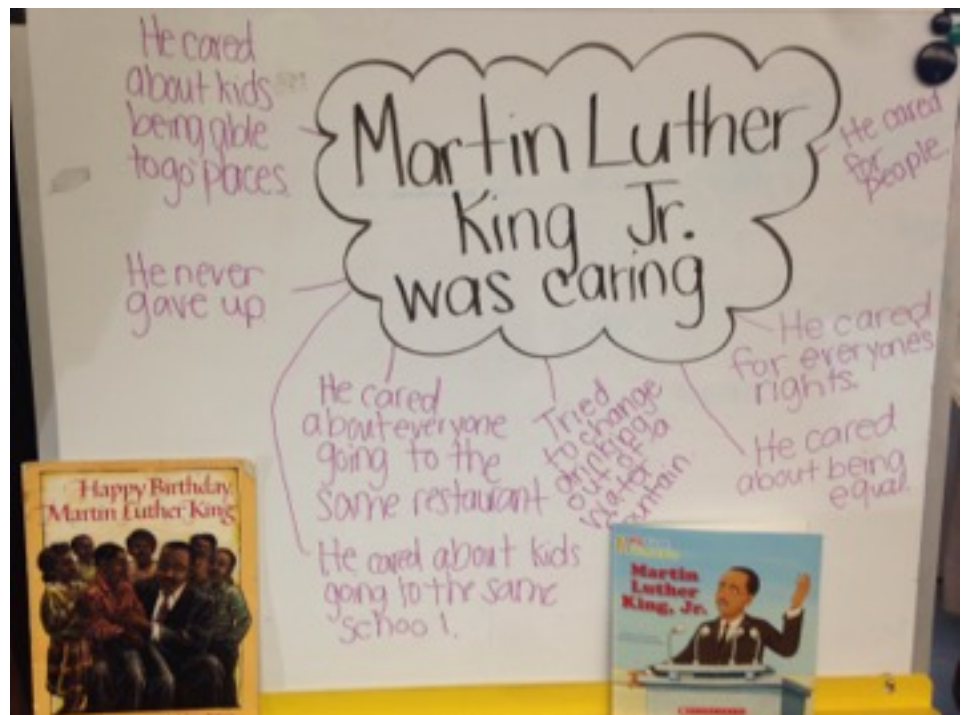 Martin Luther
King Jr.
was caring
He cared
about kids
being able
to go paces.
He never
gave up
He cared
about everyone
going to the
same restaurant
He cared about kids
going to the same
school.
Tried
to change
drinking
out of a
water
ountain.
He cared
about being
equal.
He cared
for everyone's
rights.
He cared
for
people.
Happy Birthday,
Martin Luther King
Martin
Luther
King, Jr.
SCHOLASTIC